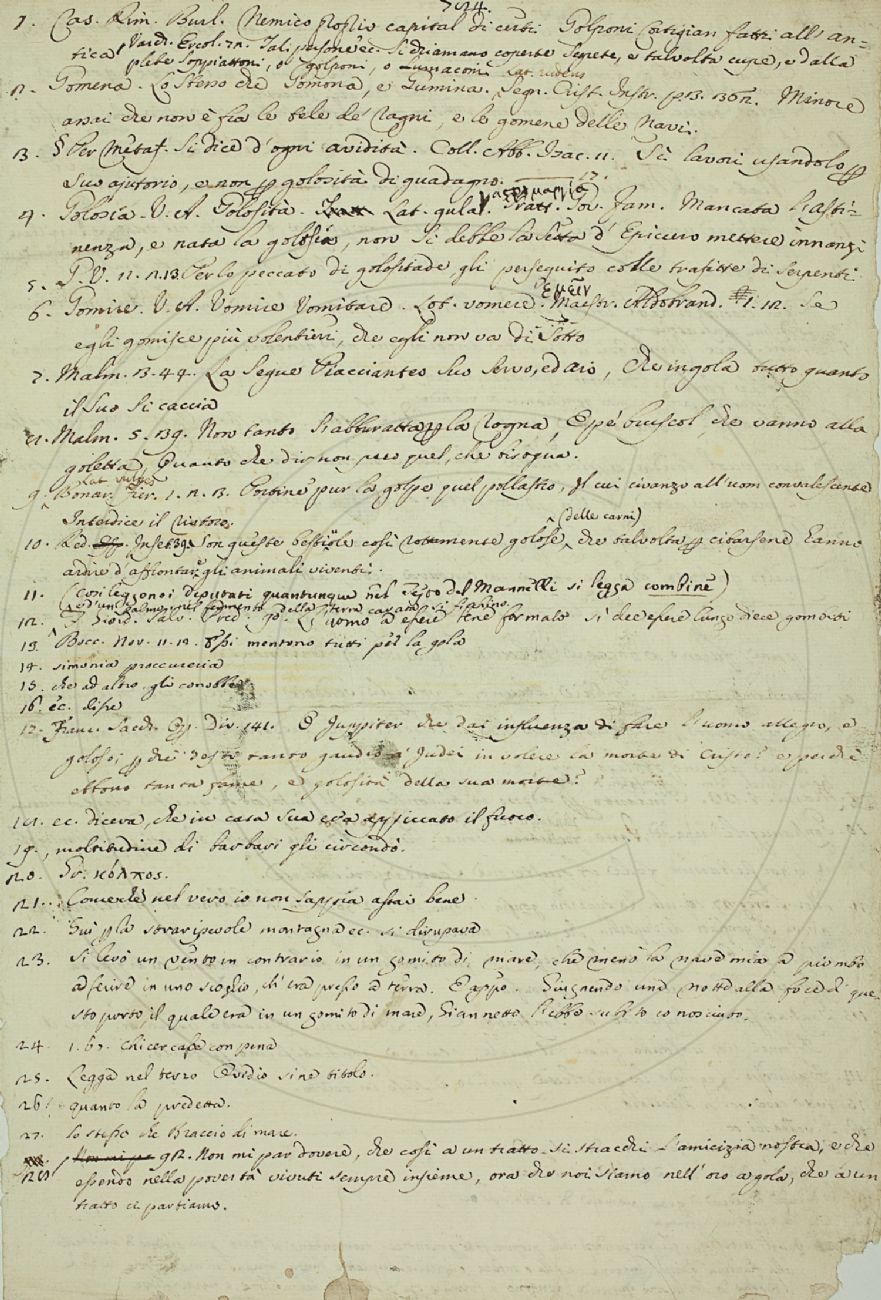 724.
1. Cas. Rim. Burl. Nemico capital di certi Golponi Cortigian fatti all' an=
tica. Varch. Ercol. 72. Tal. persone ec. si chiamano coperte segrete, e talvolta cupe, e dalla
plebe soppiattoni, o golponi, o Lumaconi Lat. rudens
2. Gomena. Lo stesso che Gomona, e Gumina. Segn. Crist. Instr. p. 3. 13. Minore
anzi che non è fra le tele de' Ragni, e le gomene delle Navi.
3. § Per Metaf. si dice d'ogni avidità. Coll. Abb. Isac. 11. Si lavori usandolo
suo ajutorio, e non golosità di guadagno.
4. Golosia. V. A. Golosità. Lat. gula γαστριμαργία Tratt. Gov. Fam. Mancata l'asti-
nenza, e nata la golosia, non si debbe la seta d' Epicuro mettere innanzi
5. G. V. 11. 2. 13. Per lo peccato di golositade gli perseguitò colle trafitte di serpenti
6. Gomire. V. A. Vomire Vomitare. Lat. vomere. ἐμεῖν Maestr. Aldobrand. 1. 12. Se
egli gomisce più volentieri, che egli non va di sotto
7. Malm. 13. 44. La segue Piaccianteo suo servo, ed aio, Che ingola tutto quanto
il suo si caccia
8. Malm. 5. 39. Non tanto s'abburatta la Rogna, E pe' bruscol, che vanno alla
goletta, Quanto che dir non può quel, che bisogna.
Lat. vulpes
9. Bonar. Fier. 1. 2. 3. Portine pur la golpe quel pollastro, Il cui civanzo all' uom convalescente
Interdice il ristoro.
10. Red. Inset. 39. Son queste bestiole così golose (delle carni), che talvolta cibarsene hanno
ardire d'affrontar gli animali viventi.
11. (Così leggono i Diputati quantunque nel Testo del Mannelli si legga combinè)
12. F. Giord. Salv. Pred. 90. L' uomo a essere bene formato si dee essere lungo diece gomiti
13. Bocc. Nov. 11. 12. Essi mentono tutti per la gola
14. simonia proccureria
15. che ad altro gli conobbe
16. ec. disse
17. Franc. Sacch. Op. Div. 141. È Juppiter che dai influenza di fare l'uomo allegro, e
goloso; diè desti tanto gaudio a' Judei in volere la morte di Cristo? e perchè
ebbono tanta fame, e golosità della sua morte?
18. ec. diceva, che in casa sua era appiccato il fuoco.
19. , moltitudine di barbari gli circondò.
20. Gr. κόλπος.
21. Comechè nel vero io non sappia assai bene
22. Giù la straripevole montagna ec. si dirupava
23. Si levò un vento in contrario in un gomito di mare, che menò la nave mia a piombo
a ferire in uno scoglio, ch'era presso a terra. E appo. Giugnendo una notte alla foce di que-
sto porto il quale era in un gomito di mare, Giannetto l'ebbe subito conosciuto.
24. 1. 67. chi cercasse con pena
25. Legga nel terzo Ovidio sine titolo.
26. quanto la predetta.
27. lo stesso che Braccio di mare.
28. 92. Non mi par dovere, che così a un tratto si stracchi l'amicizia nostra, e che
essendo nella povertà vivuti sempre insieme, ora che noi siamo nell' oro a gola, che a un
tratto ci partiamo.